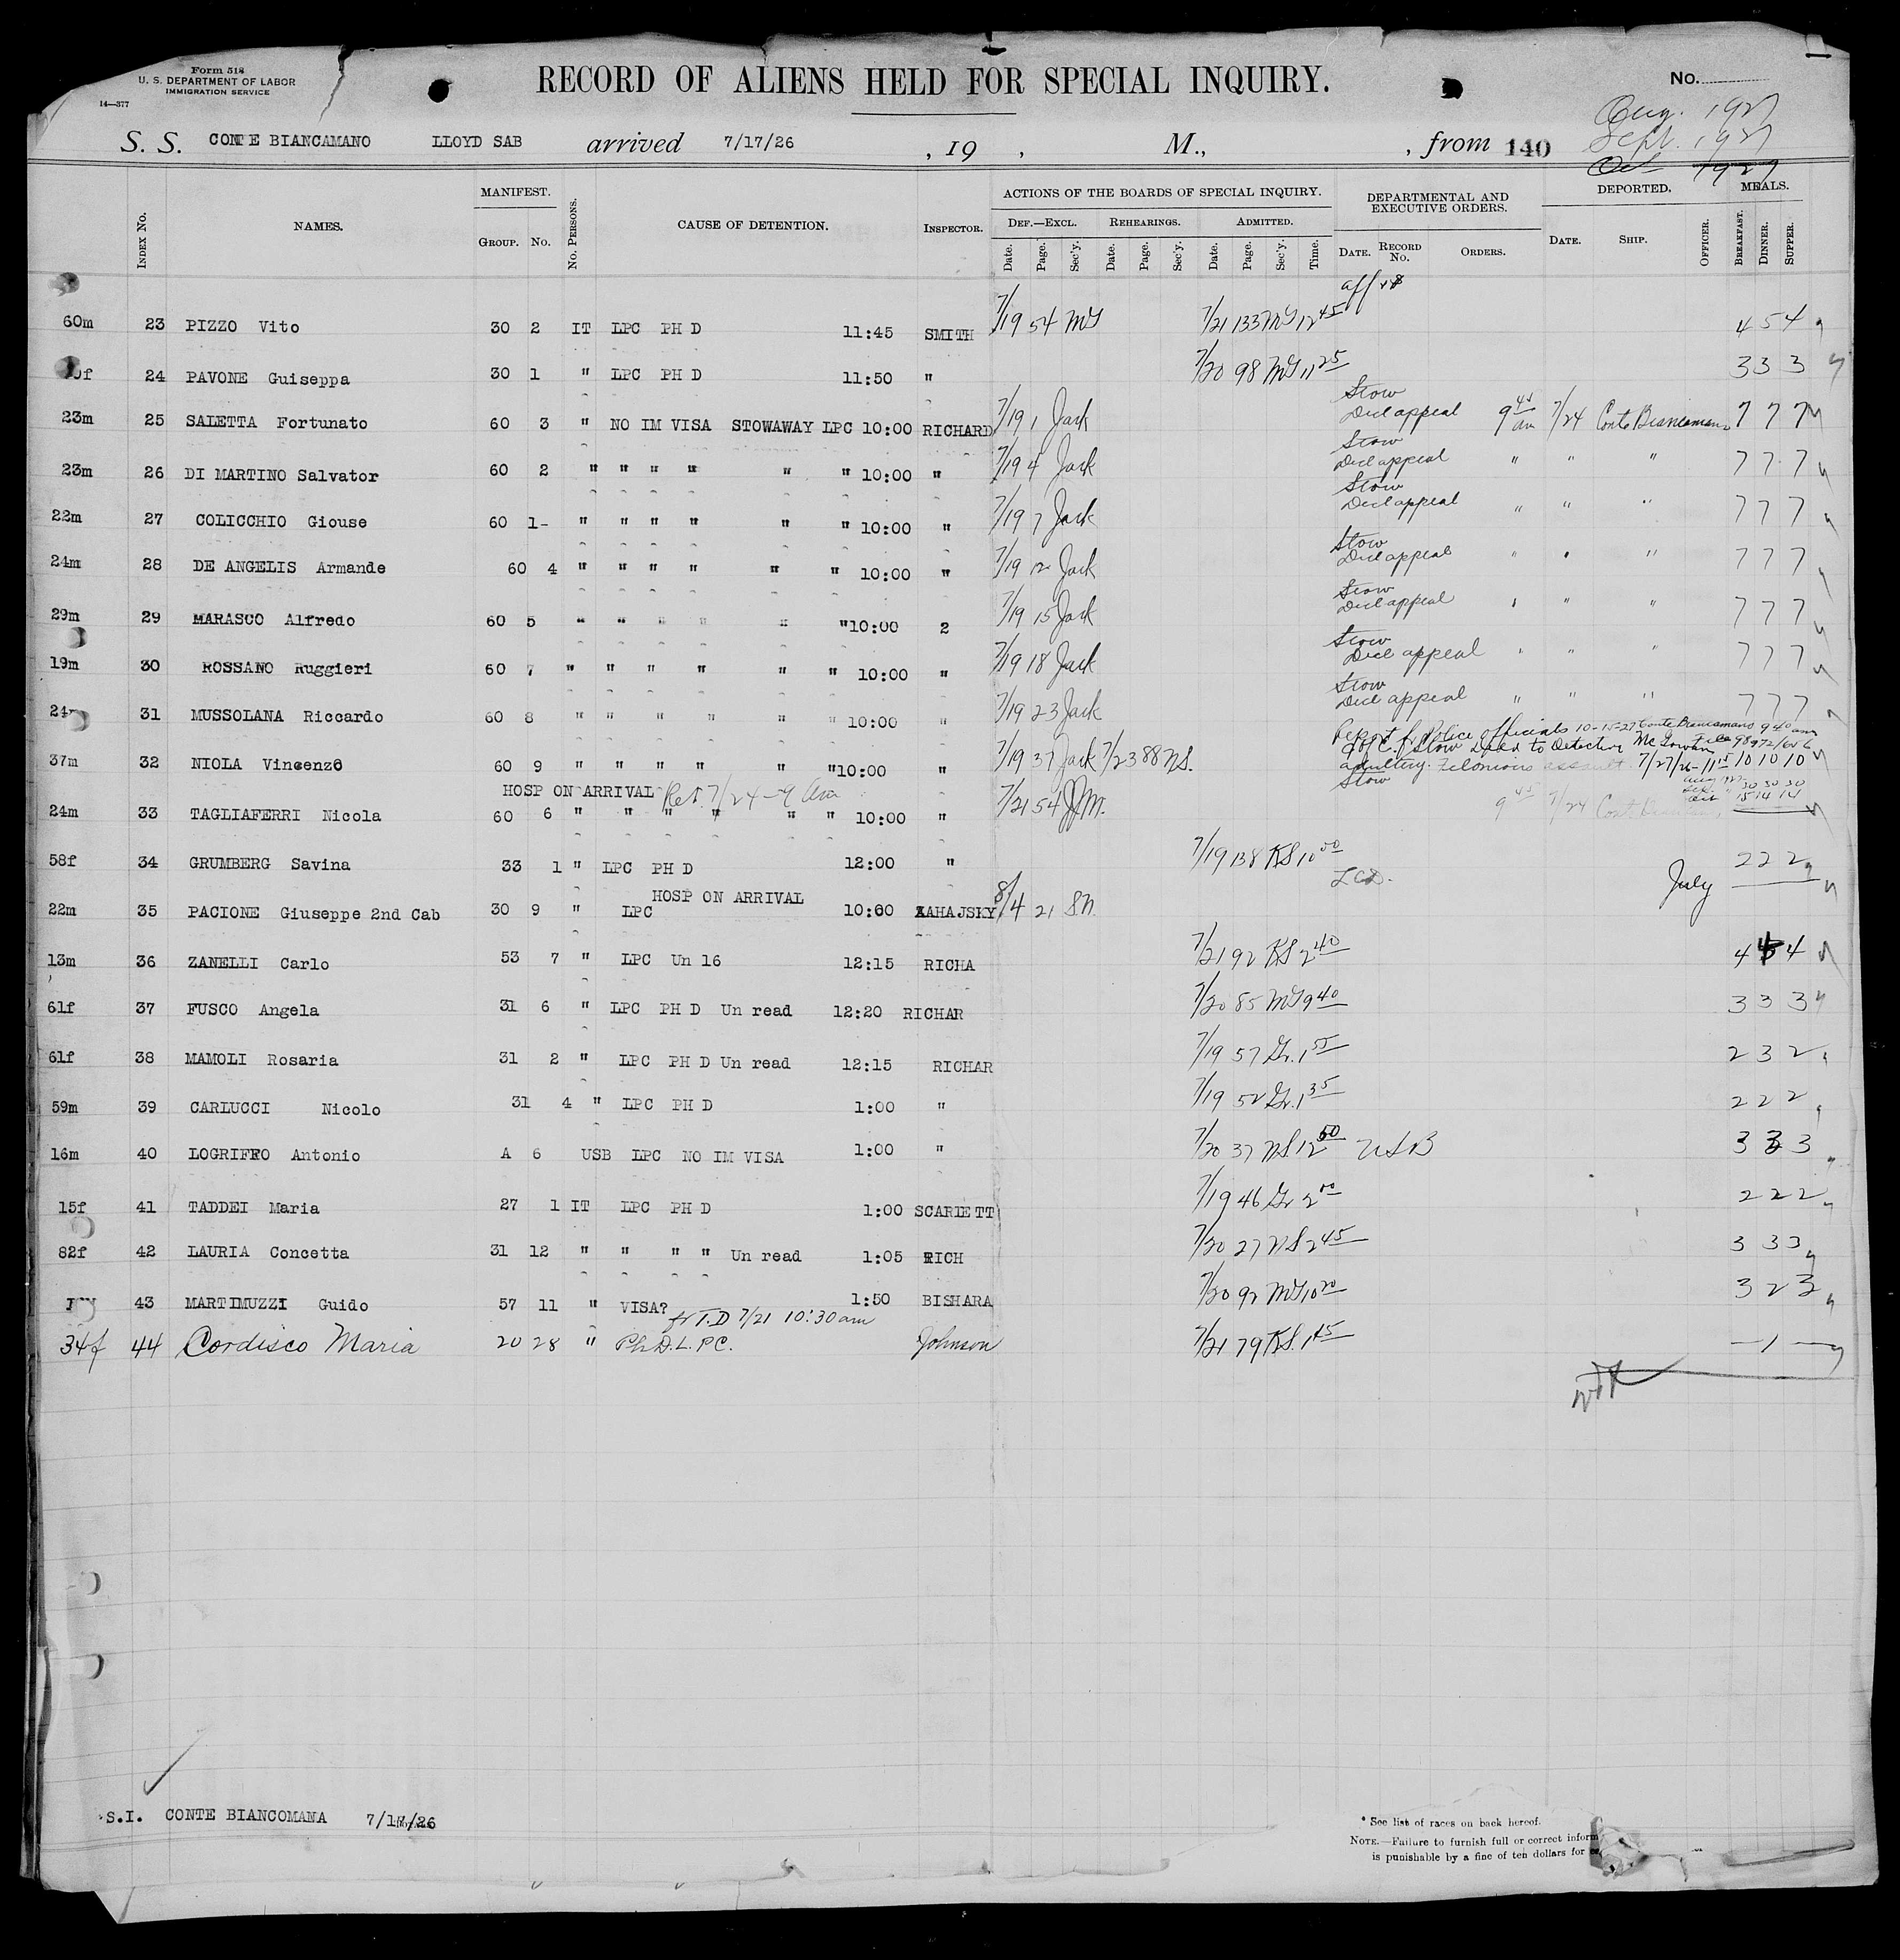 Form 518
U. S. DEPARTMENT OF LABOR
IMMIGRATION SERVICE
14—377
RECORD OF ALIENS HELD FOR SPECIAL INQUIRY.
No.
Aug. 1927
Sept. 1927
Oct 1927
S. S. CONTE BIANCAMANO LLOYD SAB arrived 7/17/26 , 19 , M., , from 140
INDEX No. NAMES. MANIFEST. GROUP. No. No. PERSONS. CAUSE OF DETENTION. INSPECTOR. ACTIONS OF THE BOARDS OF SPECIAL INQUIRY. DEF.—EXCL. Date. Page. Sec'y. REHEARINGS. Date. Page. Sec'y. ADMITTED. Date. Page. Sec'y. Time. DEPARTMENTAL AND EXECUTIVE ORDERS. DATE. RECORD No. ORDERS. DEPORTED. DATE. SHIP. OFFICER. MEALS. BREAKFAST. DINNER. SUPPER.
60m 23 PIZZO Vito 30 2 IT LPC PH D 11:45 SMITH 7/19 54 MG 7/21 133 MG 12 45 4 5 4
24 PAVONE Guiseppa 30 1 " LPC PH D 11:50 " 7/20 98 MG 11 25 3 3 3
23m 25 SALETTA Fortunato 60 3 " NO IM VISA STOWAWAY LPC 10:00 RICHARD 7/19 1 Jack Stow Decl appeal 9 45 am 7/24 Conte Biancamano 7 7 7
23m 26 DI MARTINO Salvator 60 2 " " " " " " 10:00 " 7/19 4 Jack Stow Decl appeal " " " 7 7 7
22m 27 COLICCHIO Giouse 60 1- " " " " " " 10:00 " 7/19 7 Jack Stow Decl appeal " " " 7 7 7
24m 28 DE ANGELIS Armande 60 4 " " " " " " 10:00 " 7/19 12 Jack Stow Decl appeal " " " 7 7 7
29m 29 MARASCO Alfredo 60 5 " " " " " " 10:00 2 7/19 15 Jack Stow Decl appeal " " " 7 7 7
19m 30 ROSSANO Ruggieri 60 7 " " " " " " 10:00 " 7/19 18 Jack Stow Decl appeal " " " 7 7 7
31 MUSSOLANA Riccardo 60 8 " " " " " " 10:00 " 7/19 23 Jack Stow Decl appeal " " " 7 7 7
Report fr Police officials 10-15-27 Conte Biancamano 9 40 am
Stow Deld to Detective McGowan File 98972/656
37m 32 NIOLA Vincenzo 60 9 " " " " " " 10:00 " 7/19 37 Jack 7/23 88 NS. adultery. Felonious assault. 7/27/26 - 11 15 10 10 10
HOSP ON ARRIVAL Ret. 7/24 - 9 am Stow Aug 1927 30 30 30
Oct 15 14 14
24m 33 TAGLIAFERRI Nicola 60 6 " " " " " " 10:00 " 7/21 54 9 45 7/24
58f 34 GRUMBERG Savina 33 1 " LPC PH D 12:00 " 7/19 138 KS 10 00 2 2 2
HOSP ON ARRIVAL July
22m 35 PACIONE Giuseppe 2nd Cab 30 9 " LPC 10:00 ZAHAJSKY 8/4 21 SN.
13m 36 ZANELLI Carlo 53 7 " LPC Un 16 12:15 RICHA 7/21 92 KS 2 40 4 4 4
61f 37 FUSCO Angela 31 6 " LPC PH D Un read 12:20 RICHAR 7/20 85 MG 9 40 3 3 3
61f 38 MAMOLI Rosaria 31 2 " LPC PH D Un read 12:15 RICHAR 7/19 57 Gr. 1 55 2 3 2
59m 39 CARLUCCI Nicolo 31 4 " LPC PH D 1:00 " 7/19 52 Gr. 1 35 2 2 2
16m 40 LOGRIFFO Antonio A 6 USB LPC NO IM VISA 1:00 " 7/20 37 NS 12 50 USB 3 3 3
15f 41 TADDEI Maria 27 1 IT LPC PH D 1:00 SCARLETT 7/19 46 Gr 2 00 2 2 2
82f 42 LAURIA Concetta 31 12 " " " " Un read 1:05 RICH 7/20 27 NS 2 45 3 3 3
43 MARTIMUZZI Guido 57 11 " VISA? 1:50 BISHARA 7/20 92 MG 10 20 3 2 3
fr T.D 7/21 10:30 am
34f 44 Cordisco Maria 20 28 " Ph.D. L.P.C. Johnson 7/21 79 KS. 1 45 — 1 —
S.I. CONTE BIANCOMANA 7/17/26
* See list of races on back hereof.
NOTE.—Failure to furnish full or correct inform
is punishable by a fine of ten dollars for